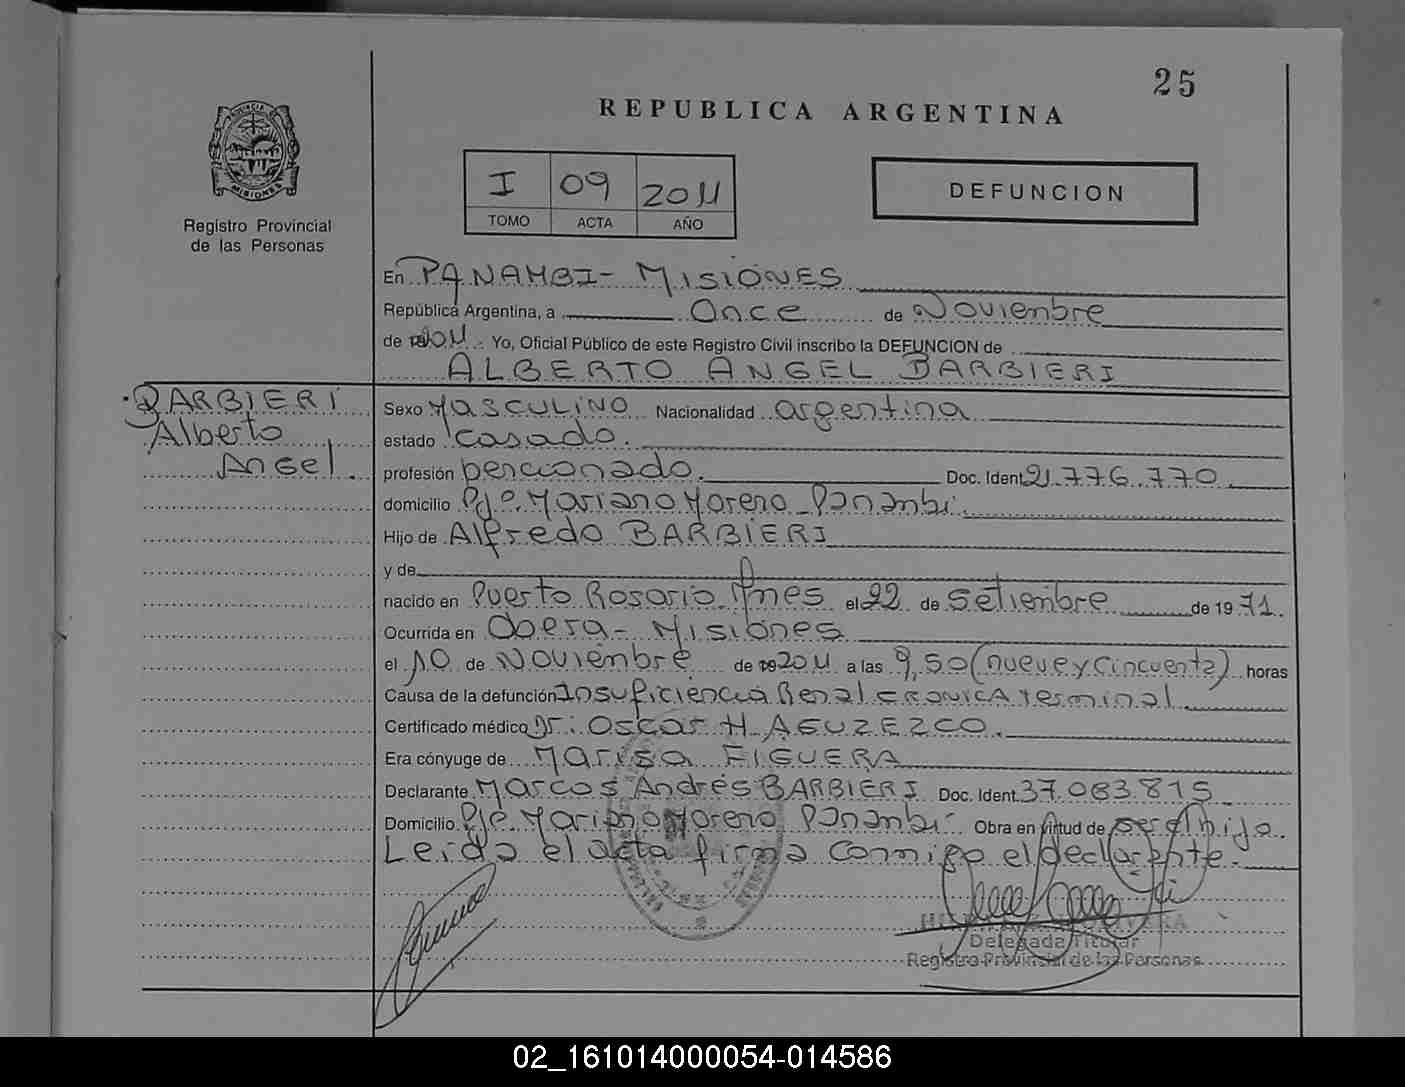 25
REPUBLICA ARGENTINA
PROVINCIA DE
MISIONES
Registro Provincial
de las Personas
I 09 2011
TOMO ACTA AÑO
DEFUNCION
En PANAMBI - MISIONES
República Argentina, a Once de Noviembre
de 2011 . Yo, Oficial Público de este Registro Civil inscribo la DEFUNCION de
ALBERTO ANGEL BARBIERI
BARBIERI
Alberto
Angel.
Sexo MASCULINO Nacionalidad argentina
estado casado.
profesión pencionado. Doc. Ident 21.776.770.
domicilio Pje. Mariano Moreno - Panambi.
Hijo de Alfredo BARBIERI
y de
nacido en Puerto Rosario Mnes el 22 de Setiembre de 1971.
Ocurrida en Obera - Misiones
el 10 de Noviembre de 2011 a las 9,50 (nueve y cincuenta) horas
Causa de la defunción Insuficiencia Renal CRONICA terminal
Certificado médico Dr. Oscar H.
Era cónyuge de Marisa FIGUERA
Declarante Marcos Andrés BARBIERI Doc. Ident. 37.083.815
Domicilio Pje. Mariano Moreno Panambi Obra en virtud de ser el hijo.
Leida el acta firma conmigo el declarante.
Delegada Titular
Registro Provincial de las Personas
02_161014000054-014586